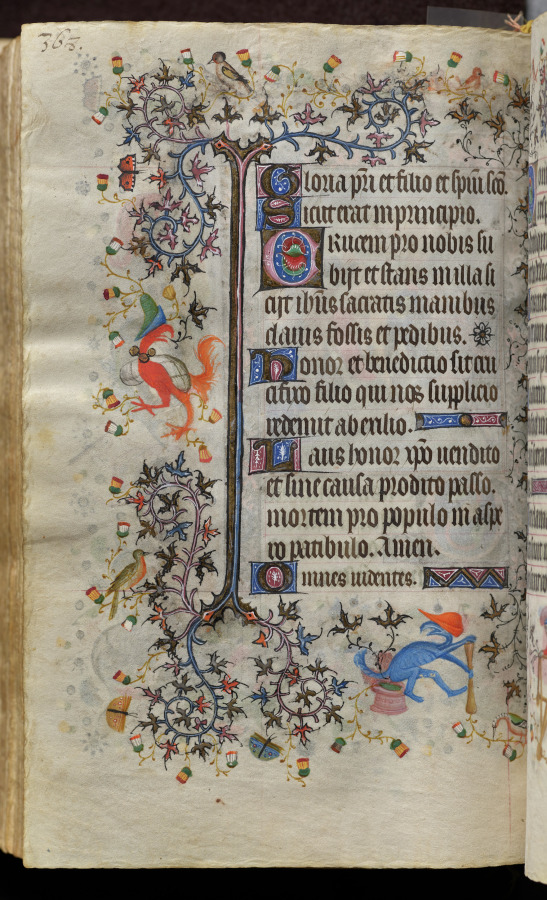 363.
Gloria pri et filio et spiui sco.
Sicut erat in principio.
Crucem pro nobis su
bijt et stans in illa si
cijt ihus sacratis manibus
clauis fossis et pedibus.
Honor et benedictio sit cru
cifixo filio qui nos supplicio
redemit ab exilio.
Laus honor xpo uendito
et sine causa prodito passo.
mortem pro populo in aspe
ro patibulo. Amen.
Omnes uidentes.